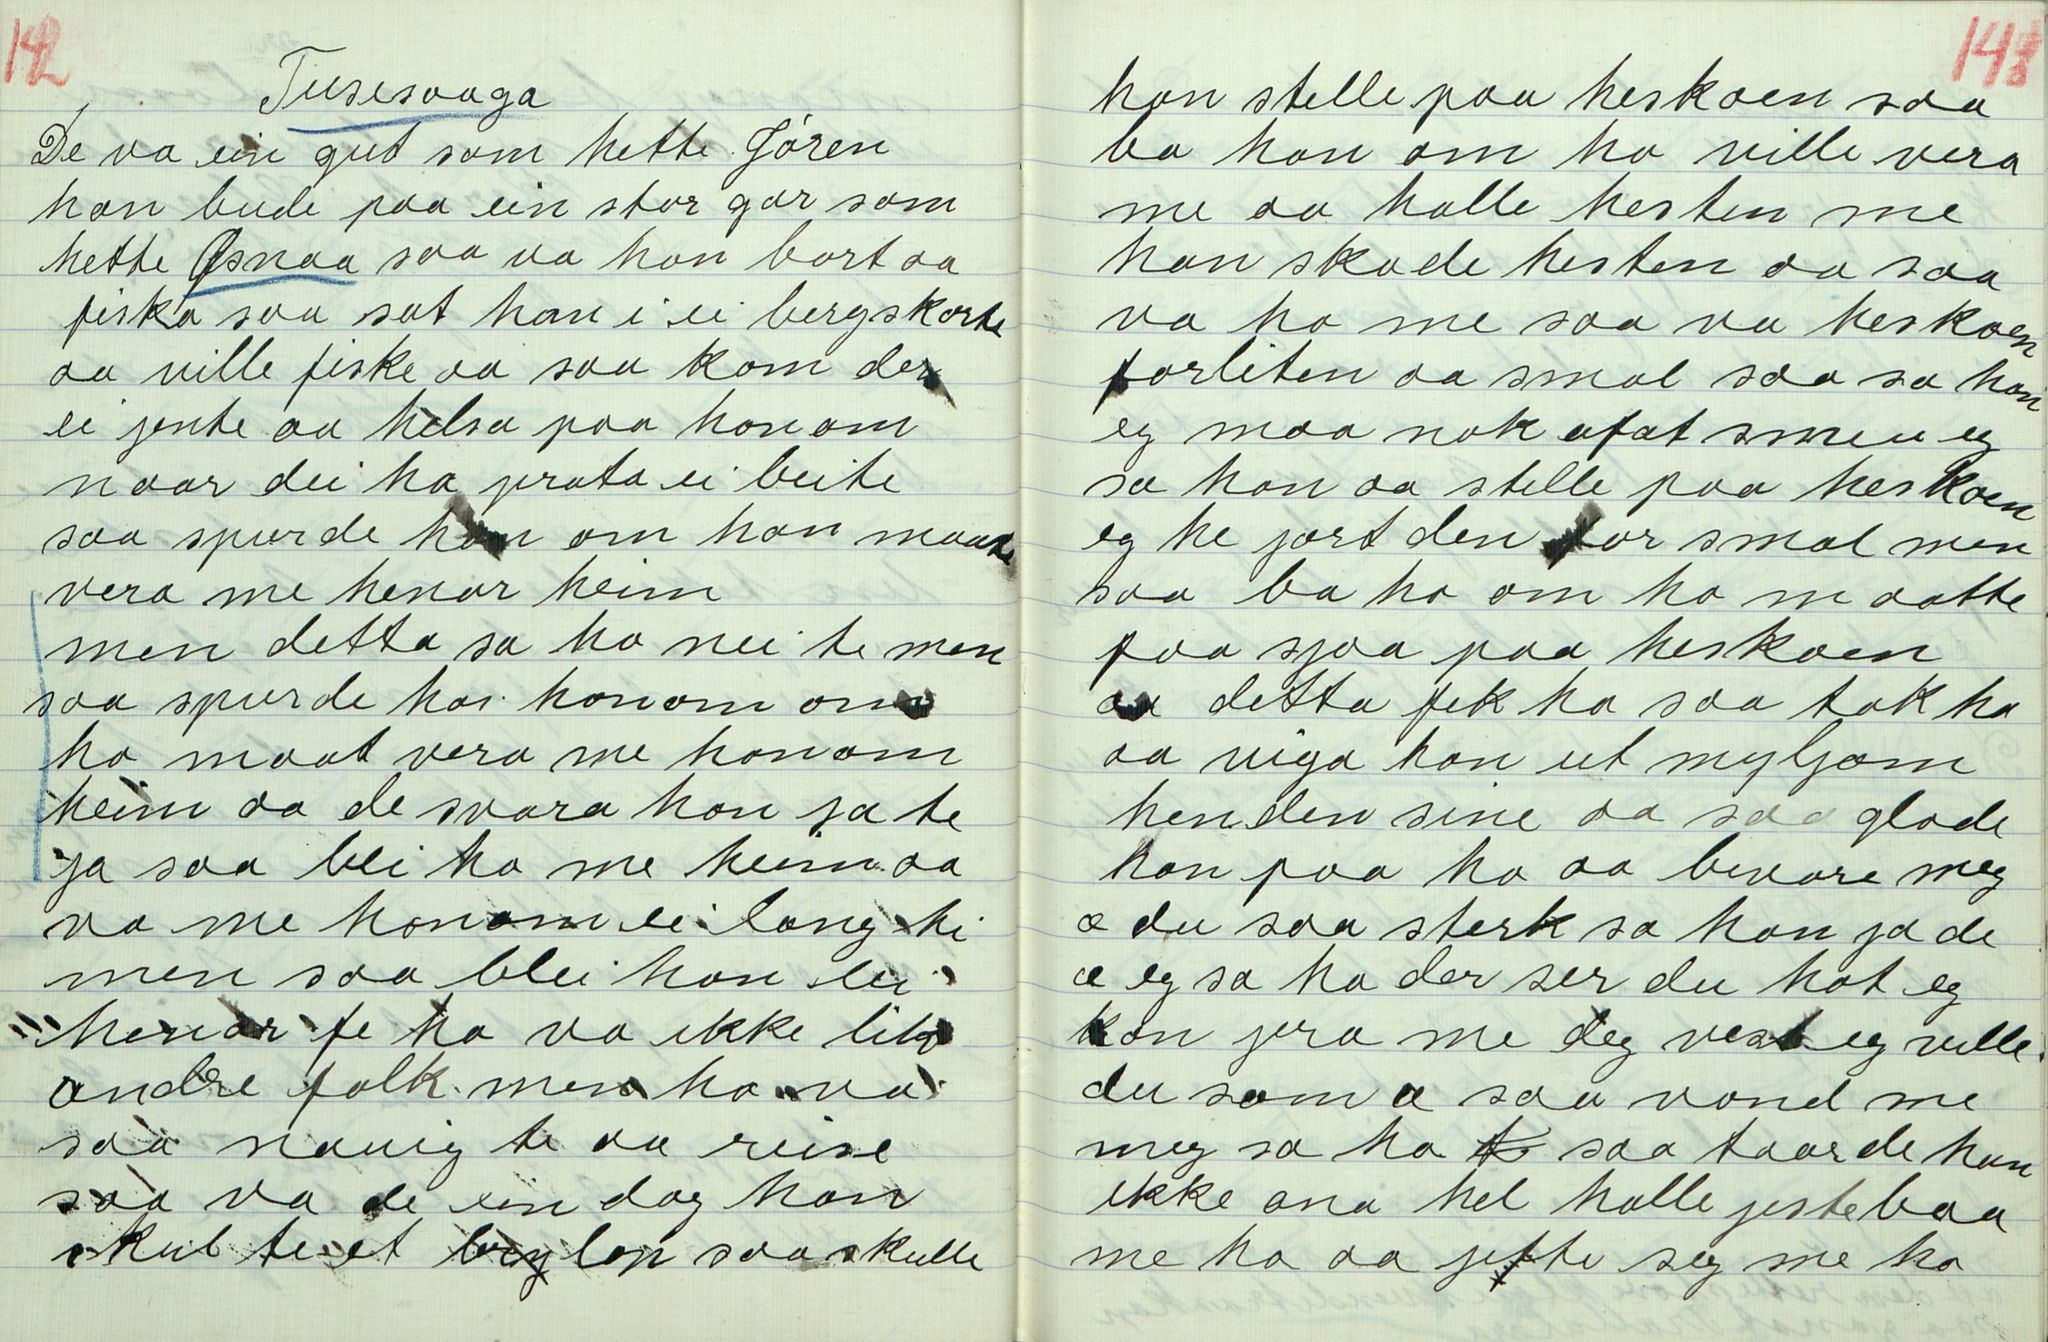 142
Tusesaaga
De va ein gut som hette Jören
han bude paa ein stor gar som
hette Øsnaa saa va han bort aa
fiska saa sat han i ei bergskorte
aa ville fiske aa saa kom der
ei jente aa helsa paa honom
naar dei ha prata ei beite
saa spurde han om han maate
vera me henar heim
men detta sa ho nei te men
saa spurde ho honom om
ho maat vera me honom
heim aa de svara han ja te
ja saa blei ho me heim aa
va me honom ei lang ti
men saa blei han lei
henar fe ho va ikke lik
andre folk men ho va
saa nauig te aa reise
saa va de ein dag han
skul te et brylop saa skulle
143
han stelle paa heskoen saa
ba han om ho ville vera
me aa halle hesten me
han skode hesten aa saa
va ho me saa va heskoen
forliten aa smal saa sa han
eg maa nok afat smeu eg
sa han aa stelle paa heskoen
eg he jort den for smal men
saa ba ho om ho maatte
faa sjaa paa heskoen
aa detta fek ho saa tok ho
aa viga han ut myljom
henden sine aa saa glode
han paa ho aa bevare meg
æ du saa sterk sa han ja de
æ eg sa ho der ser du hot eg
kan jera me deg vest eg ville
du som æ saa vond me
meg sa ho saa taarde han
ikke ana hel halle jestebaa
me ho aa jifte seg me ho